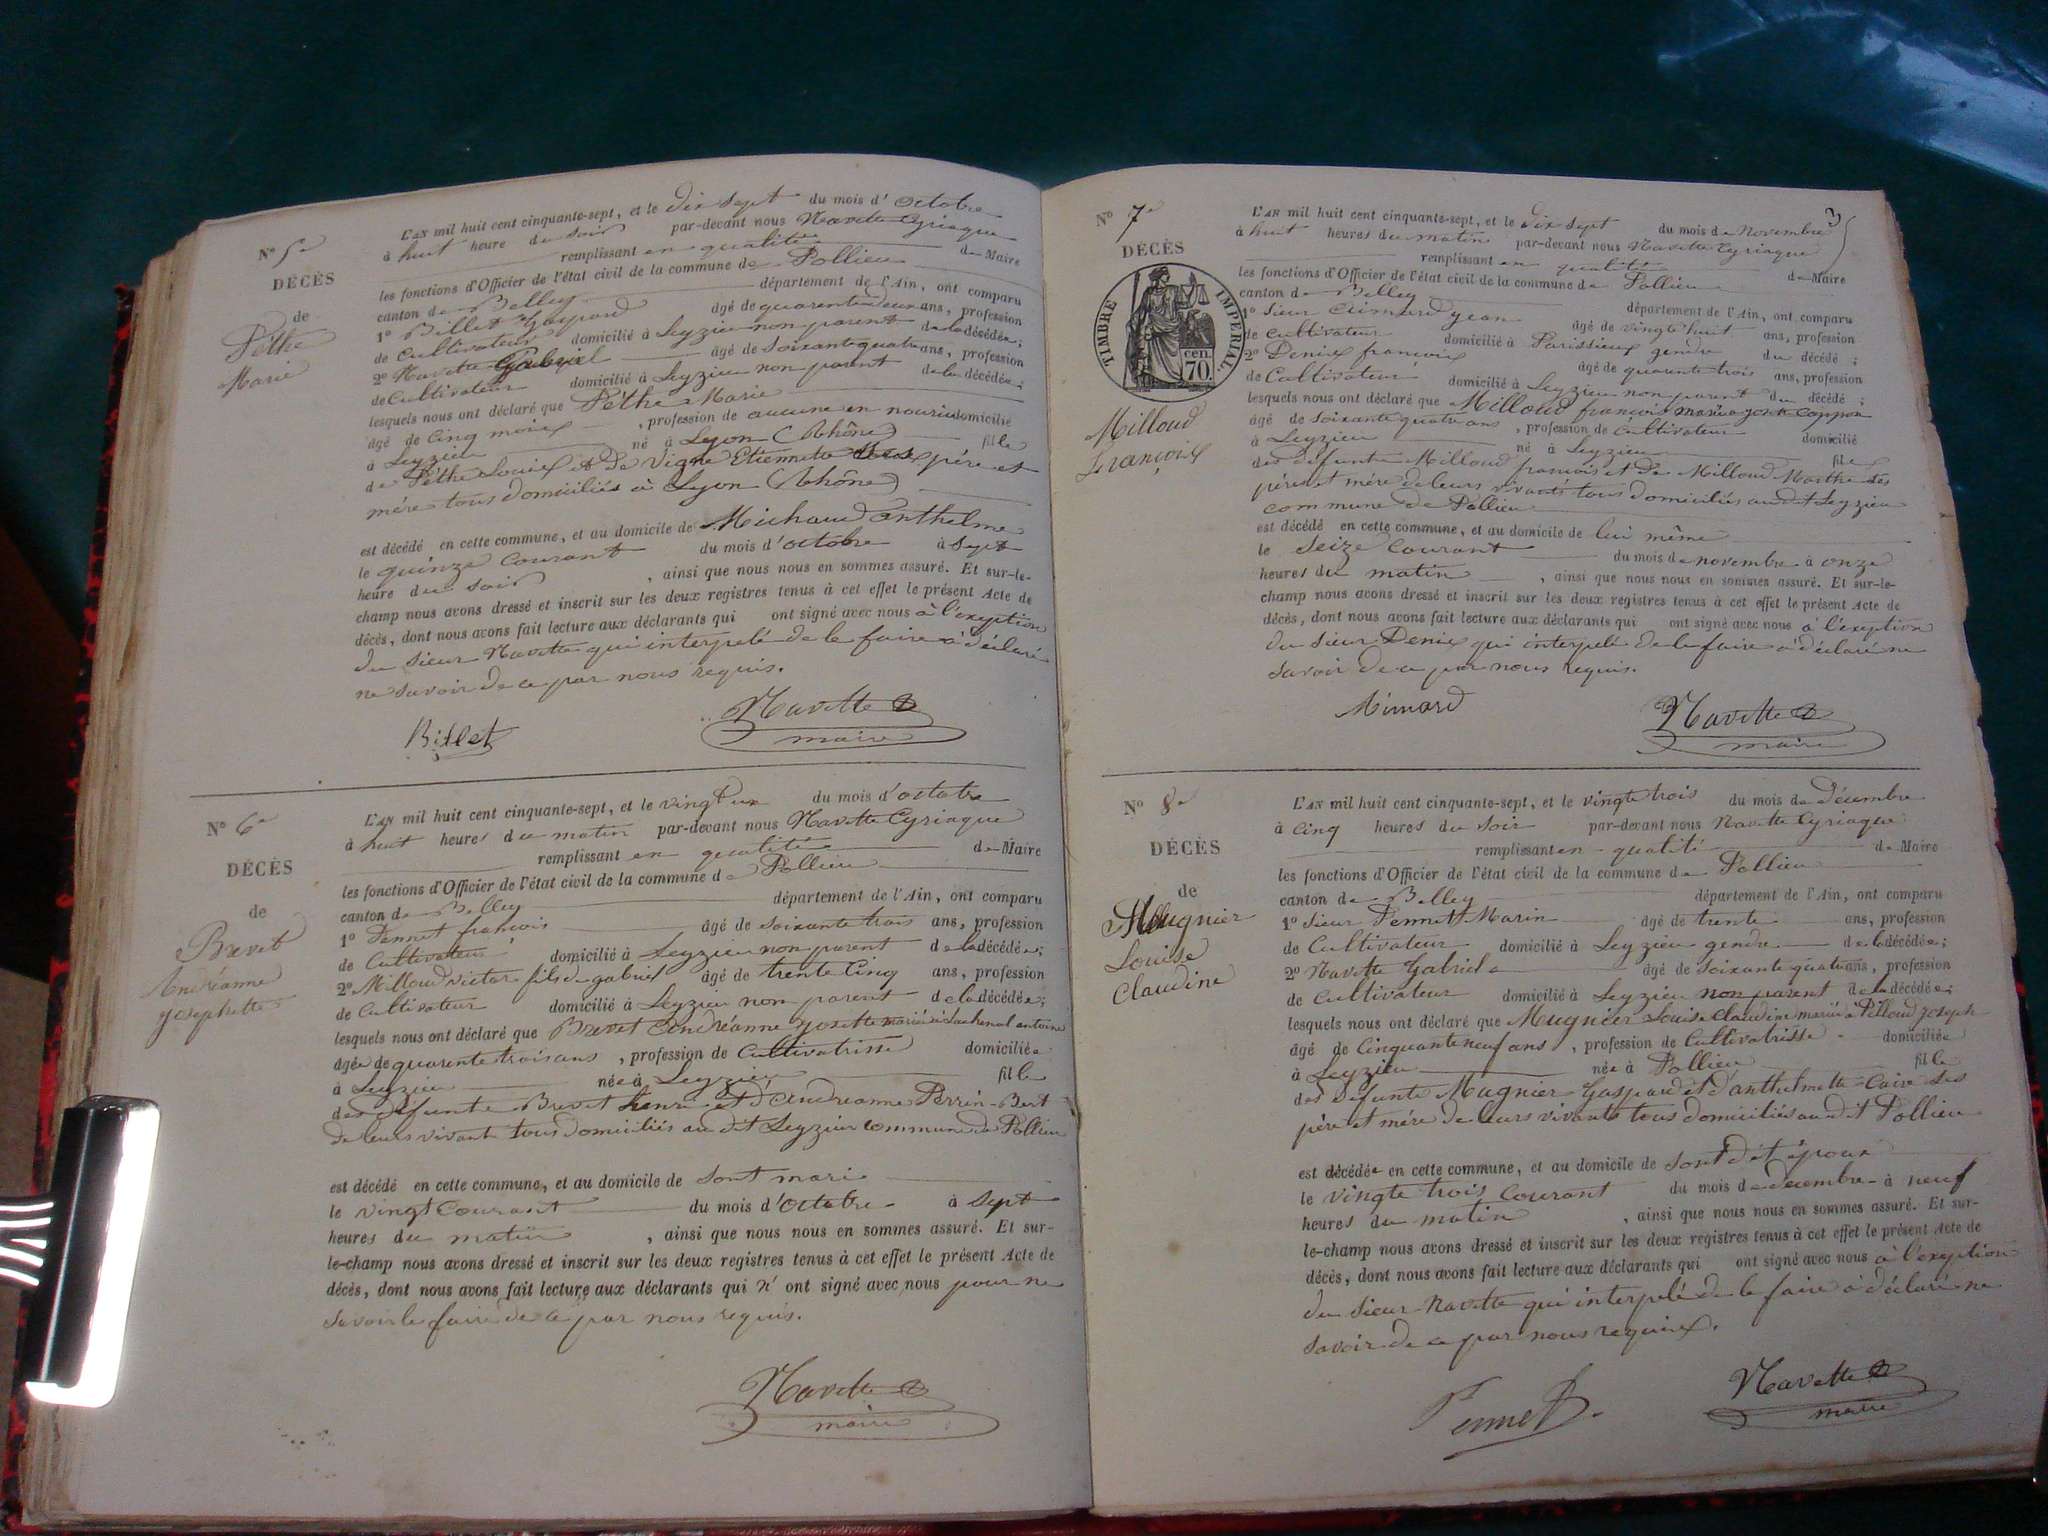 Nº 5e
DÉCÈS
de
Péthe
Marie
L'AN mil huit cent cinquante-sept, et le dix sept du mois d'octobre
à huit heure du soir par-devant nous Navette Cyriaque
remplissant en qualité de Maire
les fonctions d'Officier de l'état civil de la commune de Pollieu
canton de Belley département de l'Ain, ont comparu
1º Billet Gaspard âgé de quarente deux ans, profession
de Cultivateur domicilié à Leyzieu non parent de la décédée;
2º Navette Gabriel âgé de soixante quatre ans, profession
de Cultivateur domicilié à Leyzieu non parent de la décédée;
lesquels nous ont déclaré que Péthe Marie
âgé de cinq moix, profession de aucune en nourice domicilié
à Leyzieu né à Lyon (Rhône) fille
de Péthe Louis et De Vigne Etiennette père et
mére tous domiciliés à Lyon (Rhône)
est décédé en cette commune, et au domicile de Michaud anthelme
le quinze courant du mois d'octobre à sept
heure du soir, ainsi que nous nous en sommes assuré. Et sur-le-
champ nous avons dressé et inscrit sur les deux registres tenus à cet effet le présent Acte de
décès, dont nous avons fait lecture aux déclarants qui ont signé avec nous à l'exeption
du sieur Navette qui interpelé de le faire à déclaré
ne savoir de ce par nous requis.
Billet Navette
maire
Nº 6e
DÉCÈS
de
Brevet
Andréanne
Josephette
L'AN mil huit cent cinquante-sept, et le vingt un du mois d'octobre
à huit heures du matin par-devant nous Navette Cyriaque
remplissant en qualité de Maire
les fonctions d'Officier de l'état civil de la commune de Pollieu
canton de Belley département de l'Ain, ont comparu
1º Pennet françois âgé de soixante trois ans, profession
de Cultivateur domicilié à Leyzieu non parent de la décédée;
2º Milloud victor fils de gabriel âgé de trente cinq ans, profession
de Cultivateur domicilié à Leyzieu non parent de la décédée;
lesquels nous ont déclaré que Brevet Andréanne Josette mariée à antoine
âgée de quarente trois ans, profession de Cultivatrisse domiciliée
à Leyzieu née à Leyzieu fille
des défunts Brevet henri et d'Andréanne Perrin-Bert
de leurs vivant tous domiciliés au dit Leyzieu commune de Pollieu
est décédé en cette commune, et au domicile de sont mari
le vingt courant du mois d'octobre à sept
heures du matin, ainsi que nous nous en sommes assuré. Et sur-
le-champ nous avons dressé et inscrit sur les deux registres tenus à cet effet le présent Acte de
décès, dont nous avons fait lecture aux déclarants qui n'ont signé avec nous pour ne
savoir le faire de ce par nous requis.
Navette
maire
3
Nº 7e
DÉCÈS
TIMBRE IMPERIAL
cen.
70.
Milloud
François
L'AN mil huit cent cinquante-sept, et le dix sept du mois de Novembre
à huit heures du matin par-devant nous Navette Cyriaque
remplissant en qualité de Maire
les fonctions d'Officier de l'état civil de la commune de Pollieu
canton de Belley département de l'Ain, ont comparu
1º sieur jean âgé de vingt huit ans, profession
de Cultivateur domicilié à Parissieux gendre du décédé;
2º Denix françois âgé de quarante trois ans, profession
de Cultivateur domicilié à Leyzieu non parent du décédé;
lesquels nous ont déclaré que Milloud françois marié à Coppon
âgé de soixante quatre ans, profession de Cultivateur domicilié
à Leyzieu né à Leyzieu fils
des défunts Milloud françois et de Milloud Marthe ses
père et mére de leurs vivants tous domiciliés audit Leyzieu
commune de Pollieu
est décédé en cette commune, et au domicile de lui même
le seize courant du mois de novembre à onze
heures du matin, ainsi que nous nous en sommes assuré. Et sur-le-
champ nous avons dressé et inscrit sur les deux registres tenus à cet effet le présent Acte de
décès, dont nous avons fait lecture aux déclarants qui ont signé avec nous à l'exeption
du sieur Denix qui interpelé de le faire à déclaré ne
savoir de ce par nous requis.
Navette
maire
Nº 8e
DÉCÈS
de
Mugnier
Louise
Claudine
L'AN mil huit cent cinquante-sept, et le vingte trois du mois de Décembre
à cinq heures du soir par-devant nous Navette Cyriaque
remplissant en qualité de Maire
les fonctions d'Officier de l'état civil de la commune de Pollieu
canton de Belley département de l'Ain, ont comparu
1º sieur Pennet Marin âgé de trente ans, profession
de Cultivateur domicilié à Leyzieu gendre de la décédée;
2º Navette Gabriel âgé de soixante quatre ans, profession
de Cultivateur domicilié à Leyzieu non parent de la décédée;
lesquels nous ont déclaré que Mugnier Louise Claudine mariée à Pilloud Joseph
âgé de Cinquante neuf ans, profession de Cultivatrisse domiciliée
à Leyzieu née à Pollieu fille
des défunts Mugnier Gaspard et d'anthelmette Caire ses
père et mére de leurs vivants tous domiciliés audit Pollieu
est décédée en cette commune, et au domicile de sont dit époux
le vingte trois courant du mois de decembre à neuf
heures du matin, ainsi que nous nous en sommes assuré. Et sur-
le-champ nous avons dressé et inscrit sur les deux registres tenus à cet effet le présent Acte de
décès, dont nous avons fait lecture aux déclarants qui ont signé avec nous à l'exeption
du sieur Navette qui interpelé de le faire à déclaré ne
savoir de ce par nous requix.
Pennet Navette
maire